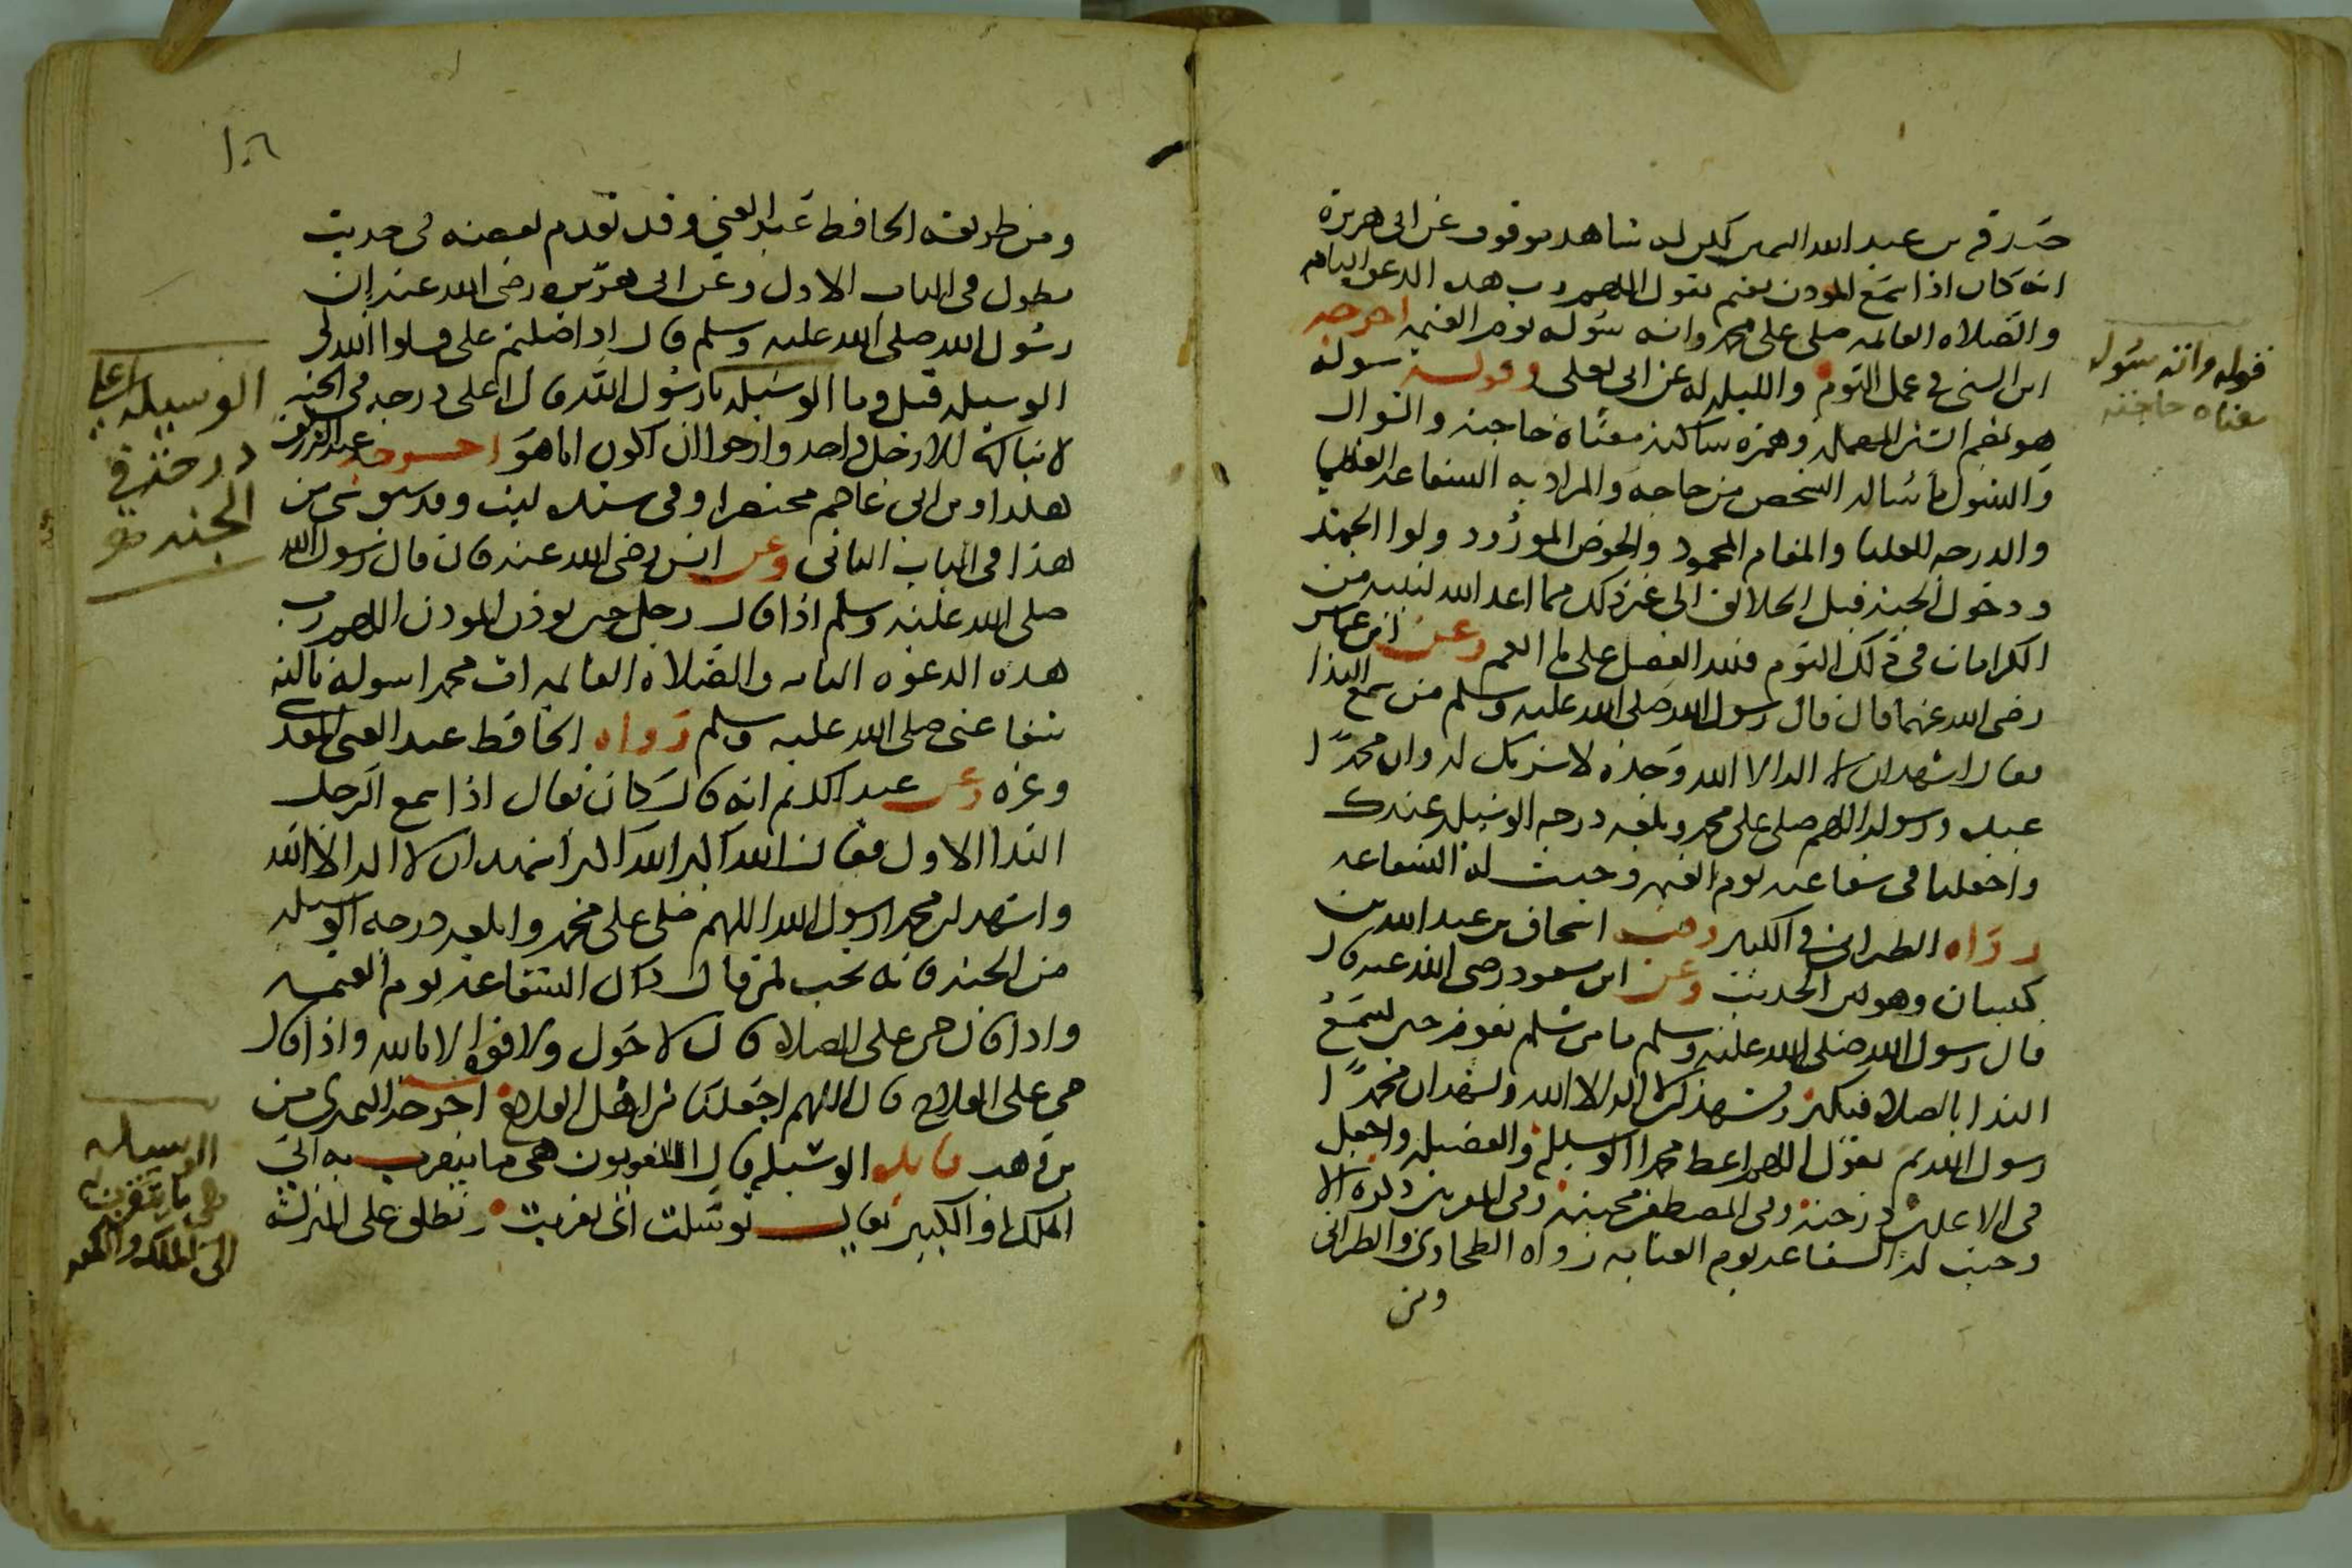 صدقة بن عبد الله السمين لكن له شاهد موقوف عن ابي هريرة
انه كان اذا سمع المودن يقيم يقول اللهم رب هده الدعوة التامه
والصلاه القائمه صلى على محمد واته سؤله يوم القيمه اخرجه
ابن السنى في عمل اليوم والليله له عن ابي يعلى وقوله سوله
هو بضم السين المهمله وهمزه ساكنه معناه حاجته والسوال
والسول ما يساله الشخص من حاجه والمراد به الشفاعه العظمى
والدرجه العليا والمقام المحمود والحوض المورود ولوا الحمد
ودخول الجنه قبل الخلايق الى غير ذلك مما اعد الله لنبيه من
الكرامات في ذلك اليوم فلله الفضل على ما انعم وعن ابن عباس
رضى الله عنهما قال قال رسول الله صلى الله عليه وسلم من سمع الندا
فقال اشهد ان لا اله الا الله وحده لا شريك له وان محمدًا
عبده ورسوله اللهم صلى على محمد وبلغه درجه الوسيله عندك
واجعلنا في شفاعته يوم القيمه وجبت له الشفاعه
رواه الطبرانى في الكبير وفيه اسحاق بن عبد الله بن
كيسان وهو لين الحديث وعن ابن مسعود رضى الله عنه قال
قال رسول الله صلى الله عليه وسلم ما من مسلم يقول حين يسمع
الندا بالصلاة فيكبر ويشهد ان لا اله الا الله ويشهد ان محمدًا
رسول الله ثم يقول اللهم اعط محمدا الوسيلة والفضيله واجعل
في الاعلين درجته وفي المصطفين محبته وفي المقربين ذكره الا
وجبت له الشفاعه يوم القيامه رواه الطحاوى والطبرانى
ومن
قوله واته سؤله
معناه حاجته
ومن طريقه الحافظ عبد الغني وقد تقدم بعضه في حديث
مطول فى الباب الاول وعن ابى هريره رضى الله عنه ان
رسول الله صلى الله عليه وسلم قال اذا صليتم على فسلوا الله لى
الوسيله قيل وما الوسيله يا رسول الله قال اعلى درجه فى الجنه
لا ينالها الا رجل واحد وارجوا ان اكون انا هو اخرجه عبد الرزاق
هكذا وبن ابى عاصم مختصرا وفى سنده ليث وقد سبق شى من
هذا فى الباب الثانى وعن انس رضى الله عنه قال قال رسول الله
صلى الله عليه وسلم اذا قال رجل حين يوذن المودن اللهم رب
هده الدعوه التامه والصلاه القائمه ات محمدا سوله نالته
شفاعتى صلى الله عليه وسلم رواه الحافظ عبد الغنى المقدسى
وغيره وعن عبد الكريم انه قال كان يقال اذا سمع الرجل
الندا الاول فقال الله اكبر الله اكبر اشهد ان لا اله الا الله
واشهد ان محمدا رسول الله اللهم صلى على محمد وابلغه درجه الوسيله
من الجنه فانه تجب لمن قال ذلك الشفاعه يوم القيمه
واذا قال حى على الصلاه قال لا حول ولا قوة الا بالله واذا قال
حى على الفلاح قال اللهم اجعلنا من اهل الفلاح اخرجه النميرى من
فايده الوسيله قال اللغويون هى ما يتقرب به الى
الملك او الكبير يقال توسلت اى تقربت وتطلق على المنزلة
الوسيله اعلى
درجة في
الجنه
الوسيله
هى ما يتقرب به
الى الملك والكبير